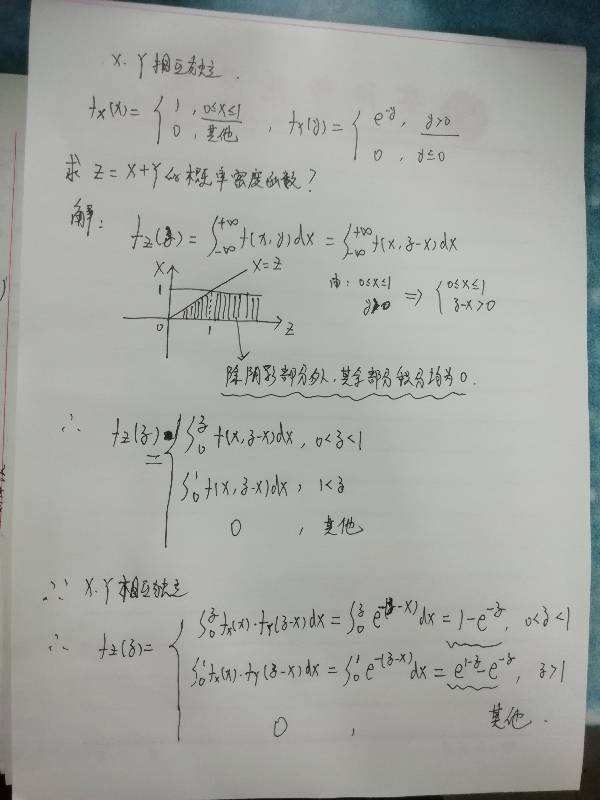 X、Y相互独立.
f_X(x)= { 1, 0≤x≤1 ; 0, 其他 , f_Y(y)= { e^{-y}, y>0 ; 0, y≤0
求 Z=X+Y的概率密度函数?
解: f_Z(z)=∫_{-∞}^{+∞} f(x,y)dx=∫_{-∞}^{+∞} f(x,z-x)dx
X 1 0 1 X=Z Z
由: 0≤x≤1 y>0 => { 0≤x≤1 ; z-x>0
除阴影部分外,其余部分积分均为0.
∴ f_Z(z)= { ∫_0^z f(x,z-x)dx, 0<z<1
∫_0^1 f(x,z-x)dx, 1<z
0, 其他
∵ X、Y相互独立
∴ f_Z(z)= { ∫_0^z f_X(x)·f_Y(z-x)dx=∫_0^z e^{-(z-x)}dx=1-e^{-z}, 0<z<1
∫_0^1 f_X(x)·f_Y(z-x)dx=∫_0^1 e^{-(z-x)}dx=e^{1-z}-e^{-z}, z>1
0, 其他.